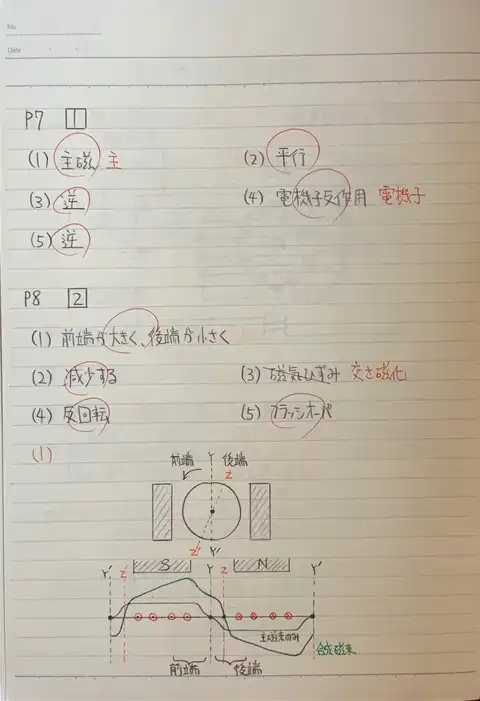 No.
Date
P7 1
(1) 主磁 主
(2) 平行
(3) 逆
(4) 電機子反作用 電機子
(5) 逆
P8 2
(1) 前端が大きく、後端が小さく
(2) 減少する
(3) 磁気ひずみ 交さ磁化
(4) 反回転
(5) フラッシオーバ
(1)
前端 Y 後端
Z
Z' Y'
Y' Z' S Y Z N Y'
主磁束のみ
合成磁束
前端 後端